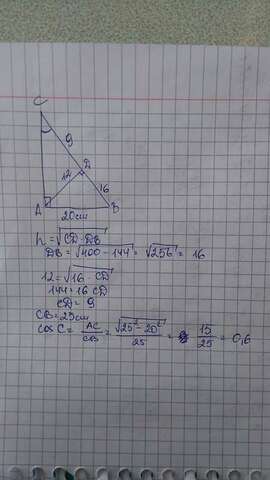 C
9
D
12
16
A
B
20см
h = √CD · DB
DB = √400 - 144 = √256 = 16
12 = √16 · CD
144 = 16 CD
CD = 9
CB = 25см
cos C = AC/CB = √25² - 20²/25 = 15/25 = 0,6